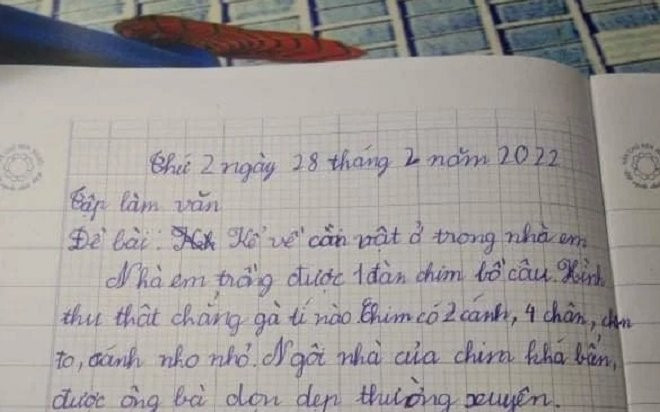 Thứ 2 ngày 28 tháng 2 năm 2022
Tập làm văn
Đề bài: Kể về cần vật ở trong nhà em
Nhà em trồng được 1 đàn chim bồ câu. Hình
thu thật chẳng gà tí nào. Chim có 2 cánh, 4 chân, chân
to, cánh nho nhỏ. Ngôi nhà của chim khá bẩn,
được ông bà dọn dẹp thường xuyên.